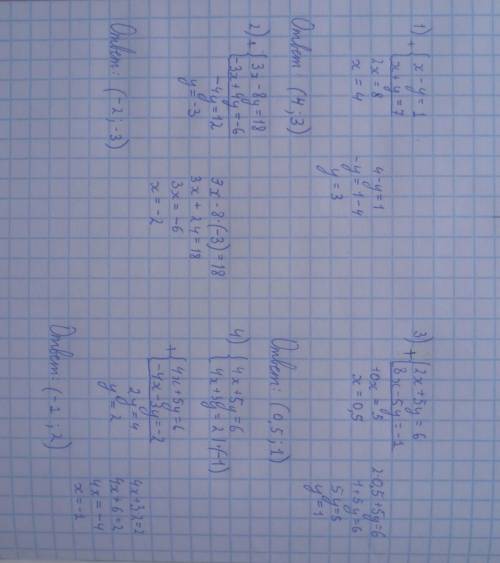 1) + { x - y = 1
x + y = 7
2x = 8
x = 4
4 - y = 1
-y = 1 - 4
y = 3
Ответ (4 ; 3)
2) + { 3x - 8y = 18
-3x + 4y = -6
-4y = 12
y = -3
3x - 8·(-3) = 18
3x + 24 = 18
3x = -6
x = -2
Ответ: (-2 ; -3)
3) + { 2x + 5y = 6
8x - 5y = -1
10x = 5
x = 0,5
2·0,5 + 5y = 6
1 + 5y = 6
5y = 5
y = 1
Ответ: (0,5 ; 1)
4) { 4x + 5y = 6
4x + 3y = 2 | ·(-1)
+ { 4x + 5y = 6
-4x - 3y = -2
2y = 4
y = 2
4x + 3·2 = 2
4x + 6 = 2
4x = -4
x = -1
Ответ: (-1 ; 2)